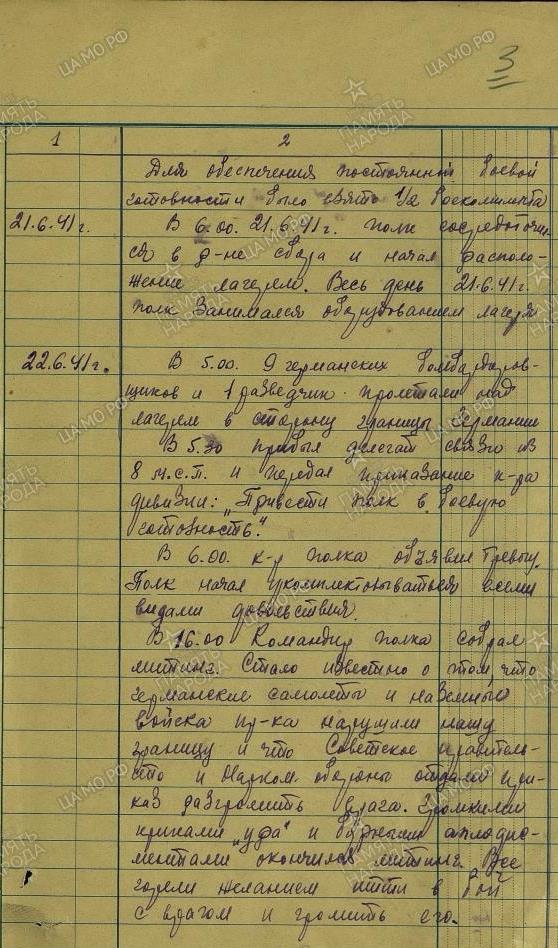 3
1 2
Для обеспечения постоянной боевой
готовности было взято 1/2 боекомплекта
21.6.41г. В 6.00. 21.6.41г. полк сосредоточи-
ся в р-не сбора и начал располо-
жение лагерем. Весь день 21.6.41г.
полк занимался оборудованием лагеря
22.6.41г. В 5.00. 9 германских бомбардиров-
щиков и 1 разведчик пролетали над
лагерем в сторону границы Германии
В 5.30 прибыл делегат связи из
8 м.с.п. и передал приказание к-ра
дивизии: „Привести полк в боевую
готовность."
В 6.00. к-р полка объявил тревогу.
Полк начал укомплектовываться всеми
видами довольствия.
В 16.00 Командир полка собрал
митинг. Стало известно о том, что
германские самолеты и наземные
войска пр-ка нарушили нашу
границу и что Советское правитель-
сто и Нарком. обороны отдали при-
каз разгромить врага. Громкими
криками „ура" и бурными аплодис-
ментами окончился митинг. Все
горели желанием итти в бой
с врагом и громить его.
ПАМЯТЬ НАРОДА
ЦАМО.РФ